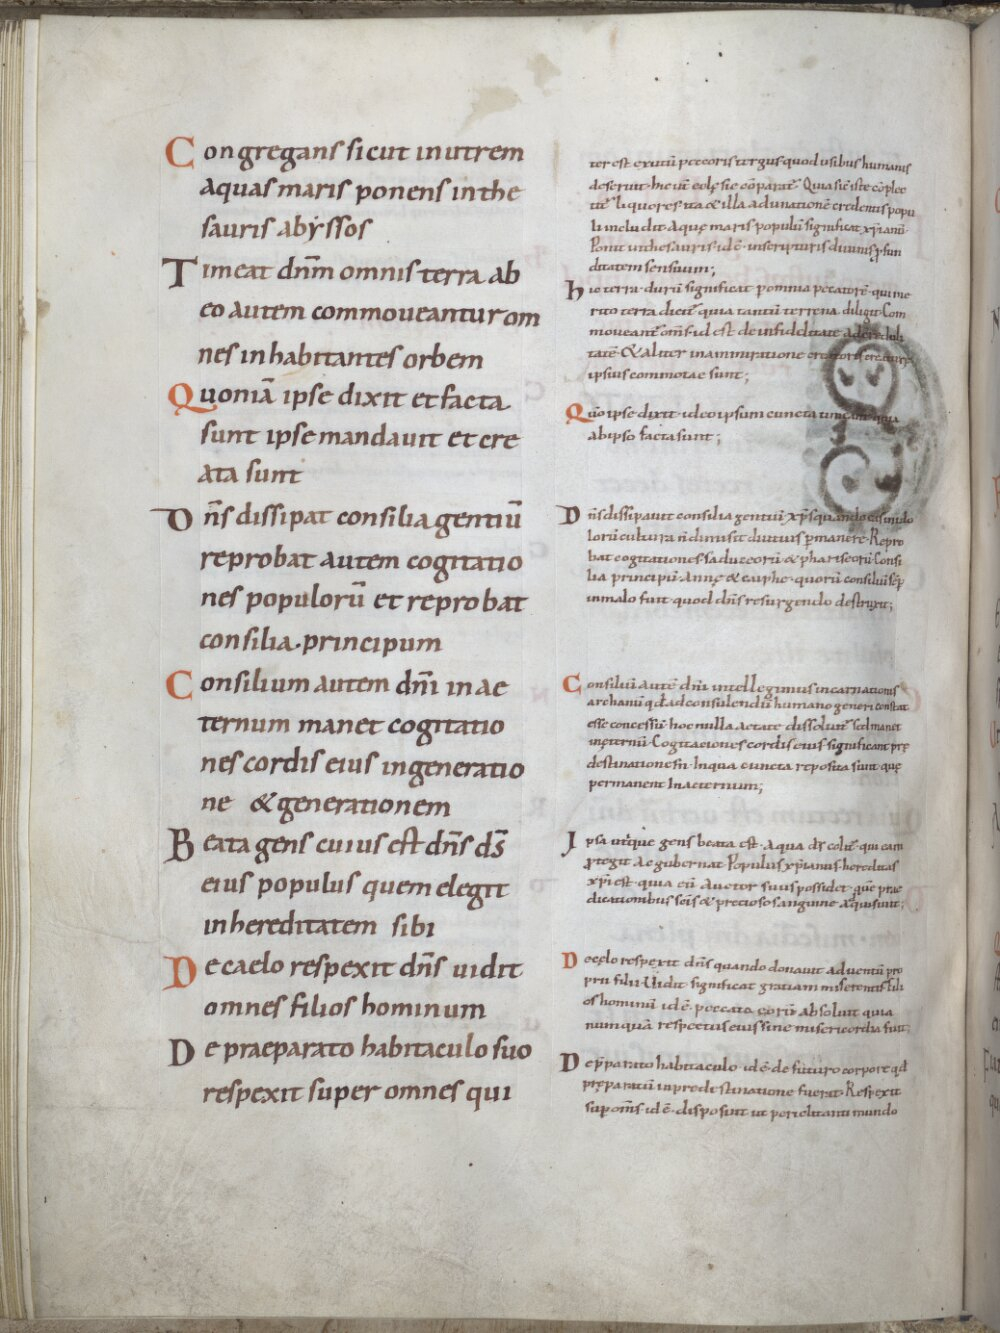 Congregans sicut in utrem
aquas maris ponens in the
sauris abyssos
Timeat dnm̄ omnis terra ab
eo autem commoveantur om
nes inhabitantes orbem
Quoniā ipse dixit et facta
sunt ipse mandauit et cre
ata sunt
Dn̄s dissipat consilia gentiū
reprobat autem cogitatio
nes populorū et reprobat
consilia principum
Consilium autem dn̄i in ae
ternum manet cogitatio
nes cordis eius in generatio
ne & generationem
Beata gens cuius est dn̄s ds̄
eius populus quem elegit
in hereditatem sibi
De caelo respexit dn̄s uidit
omnes filios hominum
De praeparato habitaculo suo
respexit super omnes qui
ter est exutū pecoris tergus quod usibus humanis
deseruit. hic utr̄ eccl̄ę sic cōparat̄. Quia sic̄ iste cōplec
tit̄ liquores ita & illa adunationē credentis popu
li includit. Aquę maris populū significat xp̄ianū.
Ponit in thesauris id ē. in scripturis diuinis ꝓfun
ditatem sensuum;
hic terra. durū significat peccatorē. qui me
rito terra dicit̄ quia tantū terrena diligit. Com
moueant̄ om̄s id est de infidelitate ad creduli
tatē. & aliter in ammiratione creatoris
ipsius commotae sunt;
Qūo ipse dixit. id eo ipsum cuncta quia
ab ipso facta sunt;
Dn̄s dissipauit consilia gentiū. xp̄s quando eas in ido
lorū cultura n̄ dimisit diutius ꝑmanere. Repro
bat cogitationes saduceorū & phariseorū. Consi
lia principū. Annę & caiphę. quorū consiliū sēp
in malo fuit quod dn̄s resurgendo destruxit;
Consiliū autē dn̄i intellegimus incarnationis
archanū qđ ad consulendū humano generi constat
esse concessū. hoc nulla aetate dissoluit̄ sed manet
in ęternū. Cogitaciones cordis eius significant prę
destinationē. In qua cuncta reposita sunt quę
permanent in aeternum;
Ipsa utique gens beata est. a qua ds̄ colit̄. qui eam
ꝓtegit ac gubernat. Populus xp̄ianus hereditas
xp̄i est. quia eū auctor suus possidet. quē prae
dicationibus sc̄is & precioso sanguine adquisiuit;
De celo respexit dn̄s quando donauit aduentū pro
prii filii. Uidit significat gratiam miserentis. fili
os hominū id ē. peccata eorū absoluit quia
numquā respectus eius sine misericordia fuit;
De p̄parato habitaculo. id ē. de futuro corpore qđ
pręparatū in predestinatione fuerat. Respexit
sup om̄s id ē. disposuit ut periclitanti mundo